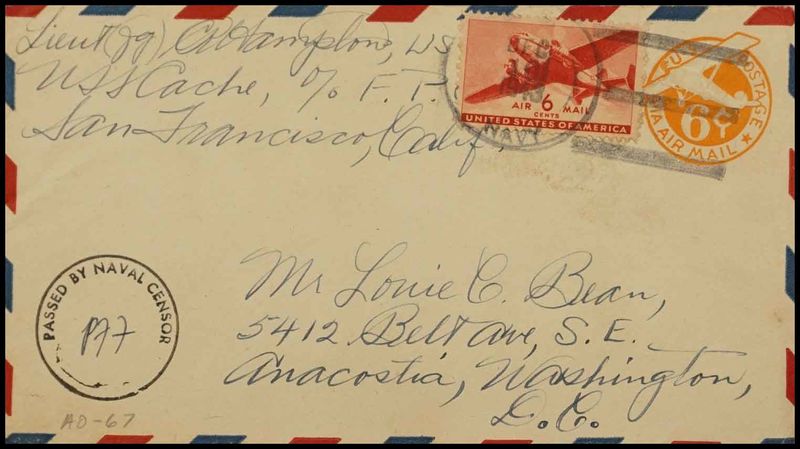 Lieut(jg) C W Hampton, US
USS Cache, % F. P.
San Francisco, Calif,
DEC
NAVY
AIR 6 MAIL
CENTS
UNITED STATES OF AMERICA
POSTAGE
6¢
VIA AIR MAIL
PASSED BY NAVAL CENSOR
AO-67
Mr Louie C. Bean,
5412 Belt Ave, S. E.
Anacostia, Washington,
D. C.